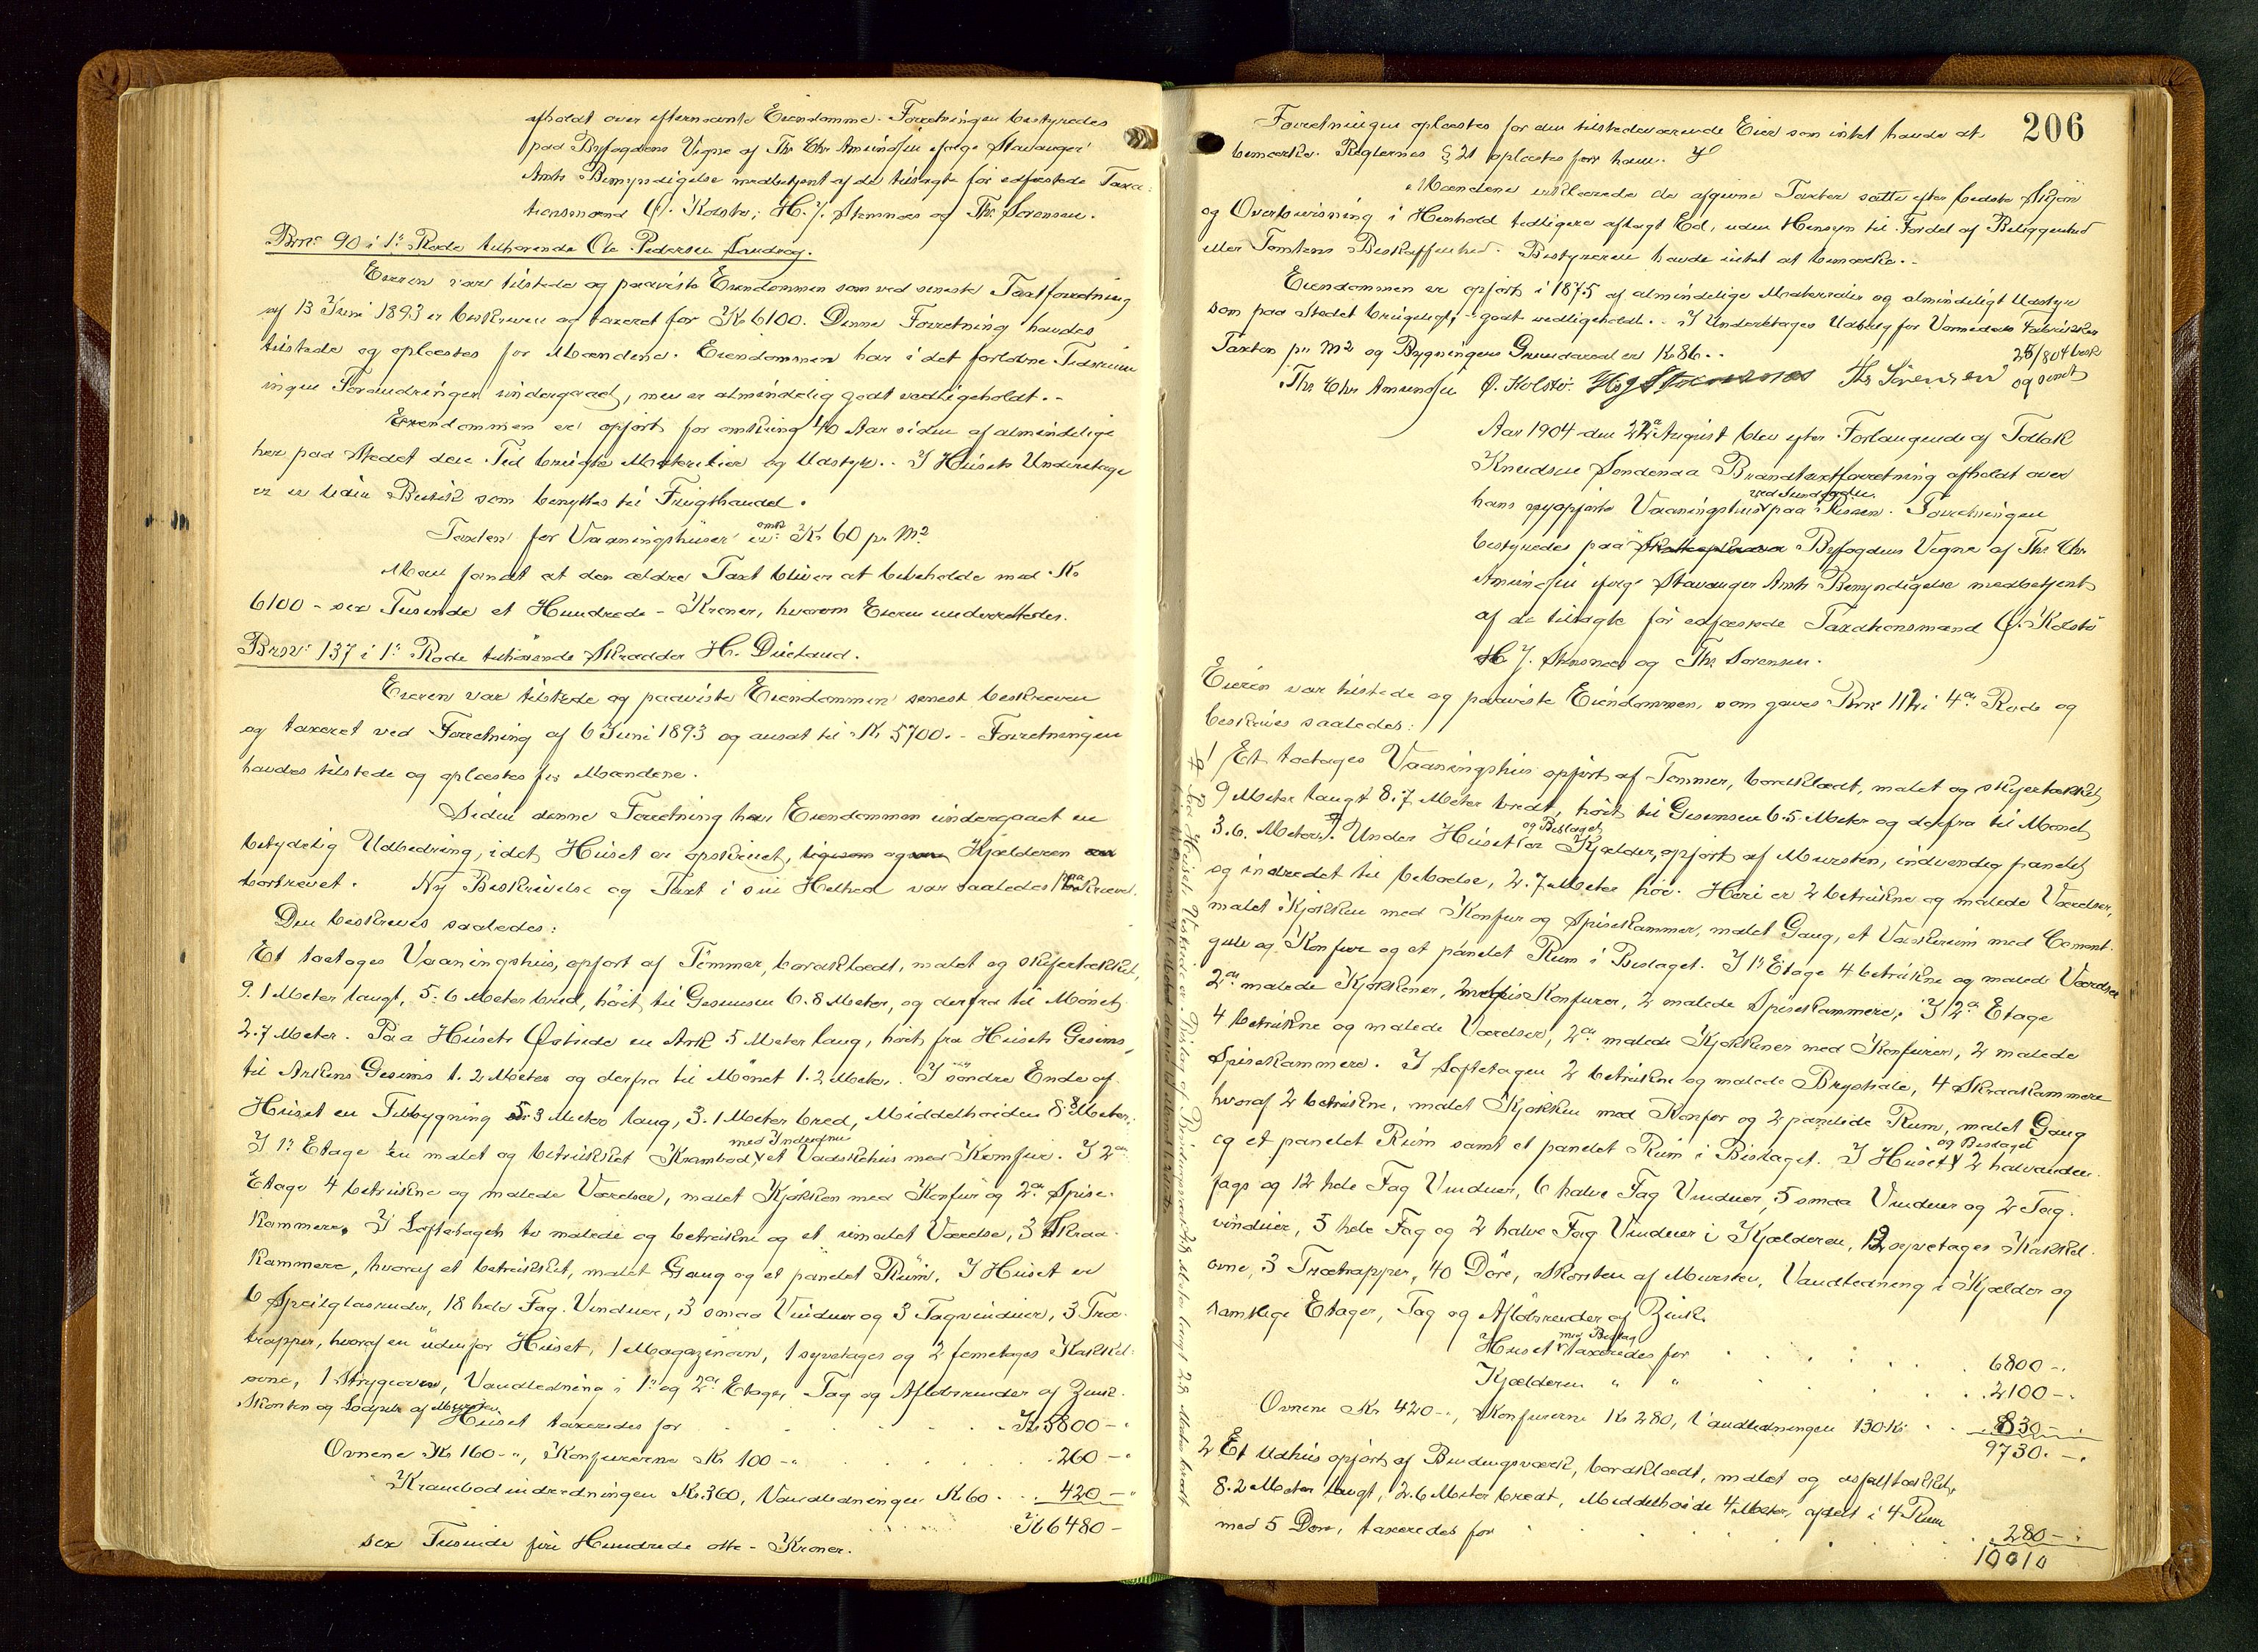 afholdt over efternævnte Eiendomme. Forretningen bestyredes
paa Byfogdens Vegne af Ths Chr. Amundsen ifølge Stavanger
Amts Bemyndigelse medbetjent af de tilsagte før edfæstede Taxa-
tionsmænd O. Kolstø, H. J. Stensnæs og Ths Sørensen.
Brnr 90 i 1ste Rode tilhørende Ole Pedersen Sandvog.
Eieren var tilstede og paaviste Eiendommen som ved seneste Taxtforretning
af 13 Juni 1893 er beskreven og taxeret for Kr 6100. Denne Forretning havdes
tilstede og oplæstes for Mændene. Eiendommen har i det forløbne Tidsrum
ingen Forandringer undergaaet, men er almindelig godt vedligeholdt.-
Eiendommen er opført for omkring 40 Aar siden af almindelige
her paa Stedet den Tid brugte Materialier og Udstyr.. I Husets Underetage
er en liden Butik som benyttes til Frugthandel.
Taxten for Vaaningshuset er omkr Kr 60 pr. M2
Man fandt at den ældre Taxt bliver at bibeholde med Kr
6100 - sex Tusinde et Hundrede - Kroner, hvorom Eieren underrettedes.
Brnr 137 i 1ste Rode tilhørende Skrædder H. Dueland.
Eieren var tilstede og paaviste Eiendommen senest beskreven
og taxeret ved Forretning af 6 Juni 1893 og ansat til Kr 5700.- Forretningen
havdes tilstede og oplæstes for Mændene.
Siden denne Forretning har Eiendommen undergaaet en
betydelig Udbedring, idet Huset er opskruet, ligesom og Kjælderen
bortrevet. Ny Beskrivelse og Taxt i sin Helhed var saaledes paakrævet.
Den beskrives saaledes:
Et toetages Vaaningshus, opført af Tømmer, bordklædt, malet og skifertækket,
9.1 Meter langt, 5.6 Meter bred, høit til Gesimsen 6.8 Meter, og derfra til Mønet
2.7 Meter. Paa Husets Østside en Ark 5 Meter lang, høit fra Husets Gesims
til Arkens Gesims 1.2 Meter og derfra til Mønet 1.2 Meter. I søndre Ende af
Huset en Tilbygning 5.3 Meter lang, 3.1 Meter bred, Middelhøiden 8.8 Meter.
I 1ste Etage en malet og betrukket Krambod med Indredn. et Vadskehus med Komfur. I 2den
Etage 4 betrukne og malede Værelser, malet Kjøkken med Konfur og 2de Spise-
kammere. I Loftetagen to malede og betrukne og et umalet Værelse, 3 Skraa-
kammere, hvoraf et betrukket, malet Gang og et pandet Rum. I Huset er
6 Speilglasruder, 18 hele Fag Vinduer, 3 smaa Vinduer og 3 Tagvinduer, 3 Træ-
trapper, hvoraf en udenfor Huset, 1 Magazinovn, 1 syvetages og 2 femetages Kakkel-
ovne, 1 Strygeovn, Vandledning i 1ste og 2den Etage, Tag og Afløbsrender af Zink.
Skorsten og Løbpibe af Mursten.
Huset taxeredes for Kr 5800 -
Ovnene Kr 160 -, Konfurerne Kr 100 - 260 -
Krambodindredningen Kr 360, Vandledningen Kr 60 420 -
Kr 6480 -
sex Tusinde fire Hundrede otte - Kroner.
206
Forretningen oplæstes for den tilstedeværende Eier som intet havde at
bemærke. Reglernes § 21 oplæstes for ham.
Mændene erklærede de afgivne Taxter satte efter bedste Skjøn
og Overbevisning i Henhold tidligere aflagt Ed, uden Hensyn til Fordel af Beliggenhed
eller Tomtens Beskaffenhed. Bestyreren havde intet at bemærke.-
Eiendommen er opført i 1875 af almindelige Materialier og almindeligt Udstyr
som paa Stedet brugeligt, - godt vedligeholdt.- I Underetagen Udsalg for
Taxten pr M2 og Bygningens Grundareal er Kr 86..
Ths Chr Amundsen O. Kolstø. H J Stensnæs Ths Sørensen
Aar 1904 den 22de August blev efter Forlangende af Tollak
Knudsen Søndenaa Brandtaxtforretning afholdt over
hans nyopførte Vaaningshus ved Sundgaden paa Risøen. Forretningen
bestyredes paa Byfogdens Vegne af Ths Chr.
Amundsen ifølge Stavanger Amts Bemyndigelse medbetjent
af de tilsagte før edfæstede Taxationsmænd O. Kolstø
H. J. Stensnæs og Ths Sørensen.
Eieren var tilstede og paaviste Eiendommen, som gaves Brnr 112 i 4de Rode og
beskrives saaledes:
1/ Et toetages Vaaningshus opført af Tømmer, bordklædt, malet og skifertækket
9 Meter langt 8.7 Meter bredt, høit til Gesimsen 6.5 Meter og derfra til Mønet
3.6. Meter. Under Huset og Bislaget er Kjælder, opført af Mursten, indvendig pandet
og indredet til Beboelse, 2.7 Meter høi. Heri er 2 betrukne og malede Værelser,
malet Kjøkken med Konfur og Spisekammer, malet Gang, et Vaskerum med Cement-
gulv og Konfur og et pandet Rum i Bislaget. I 1ste Etage 4 betrukne og malede Værelser
2de malede Kjøkkener, Konfurer, 2 malede Spisekammere. I 2den Etage
4 betrukne og malede Værelser, 2de malede Kjøkkener med Konfurer, 2 malede
Spisekammere. I Loftetagen 2 betrukne og malede Brystsale, 4 Skraakammere
hvoraf 2 betrukne, malet Kjøkken med Konfur og 2 pandede Rum, malet Gang
og et pandet Rum samt et pandet Rum i Bislaget. I Huset og Bislaget 2 halvanden-
fags og 12 hele Fag Vinduer, 6 halve Fag Vinduer, 5 smaa Vinduer og 2 Tag-
vinduer, 3 hele Fag og 2 halve Fag Vinduer i Kjælderen, 12 syvetages Kakkel-
ovne, 3 Trætrapper, 40 Døre, Skorsten af Mursten, Vandledning i Kjælder og
samtlige Etager, Tag og Afløbsrender af Zink.
Huset med Bislag taxeredes for 6800 -
Kjælderen " " 2100 -
Ovnene Kr 420 -, Konfurerne Kr 280, Vandledningen 130 Kr 830 -
9730. -
2 Et Udhus opført af Bindingsværk, bordklædt, malet og asfalttækket,
8.2 Meter langt, 2.6 Meter bredt, Middelhøide 4 Meter, afdelt i 4 Rum
med 5 Døre, taxeredes for 280 -
10010